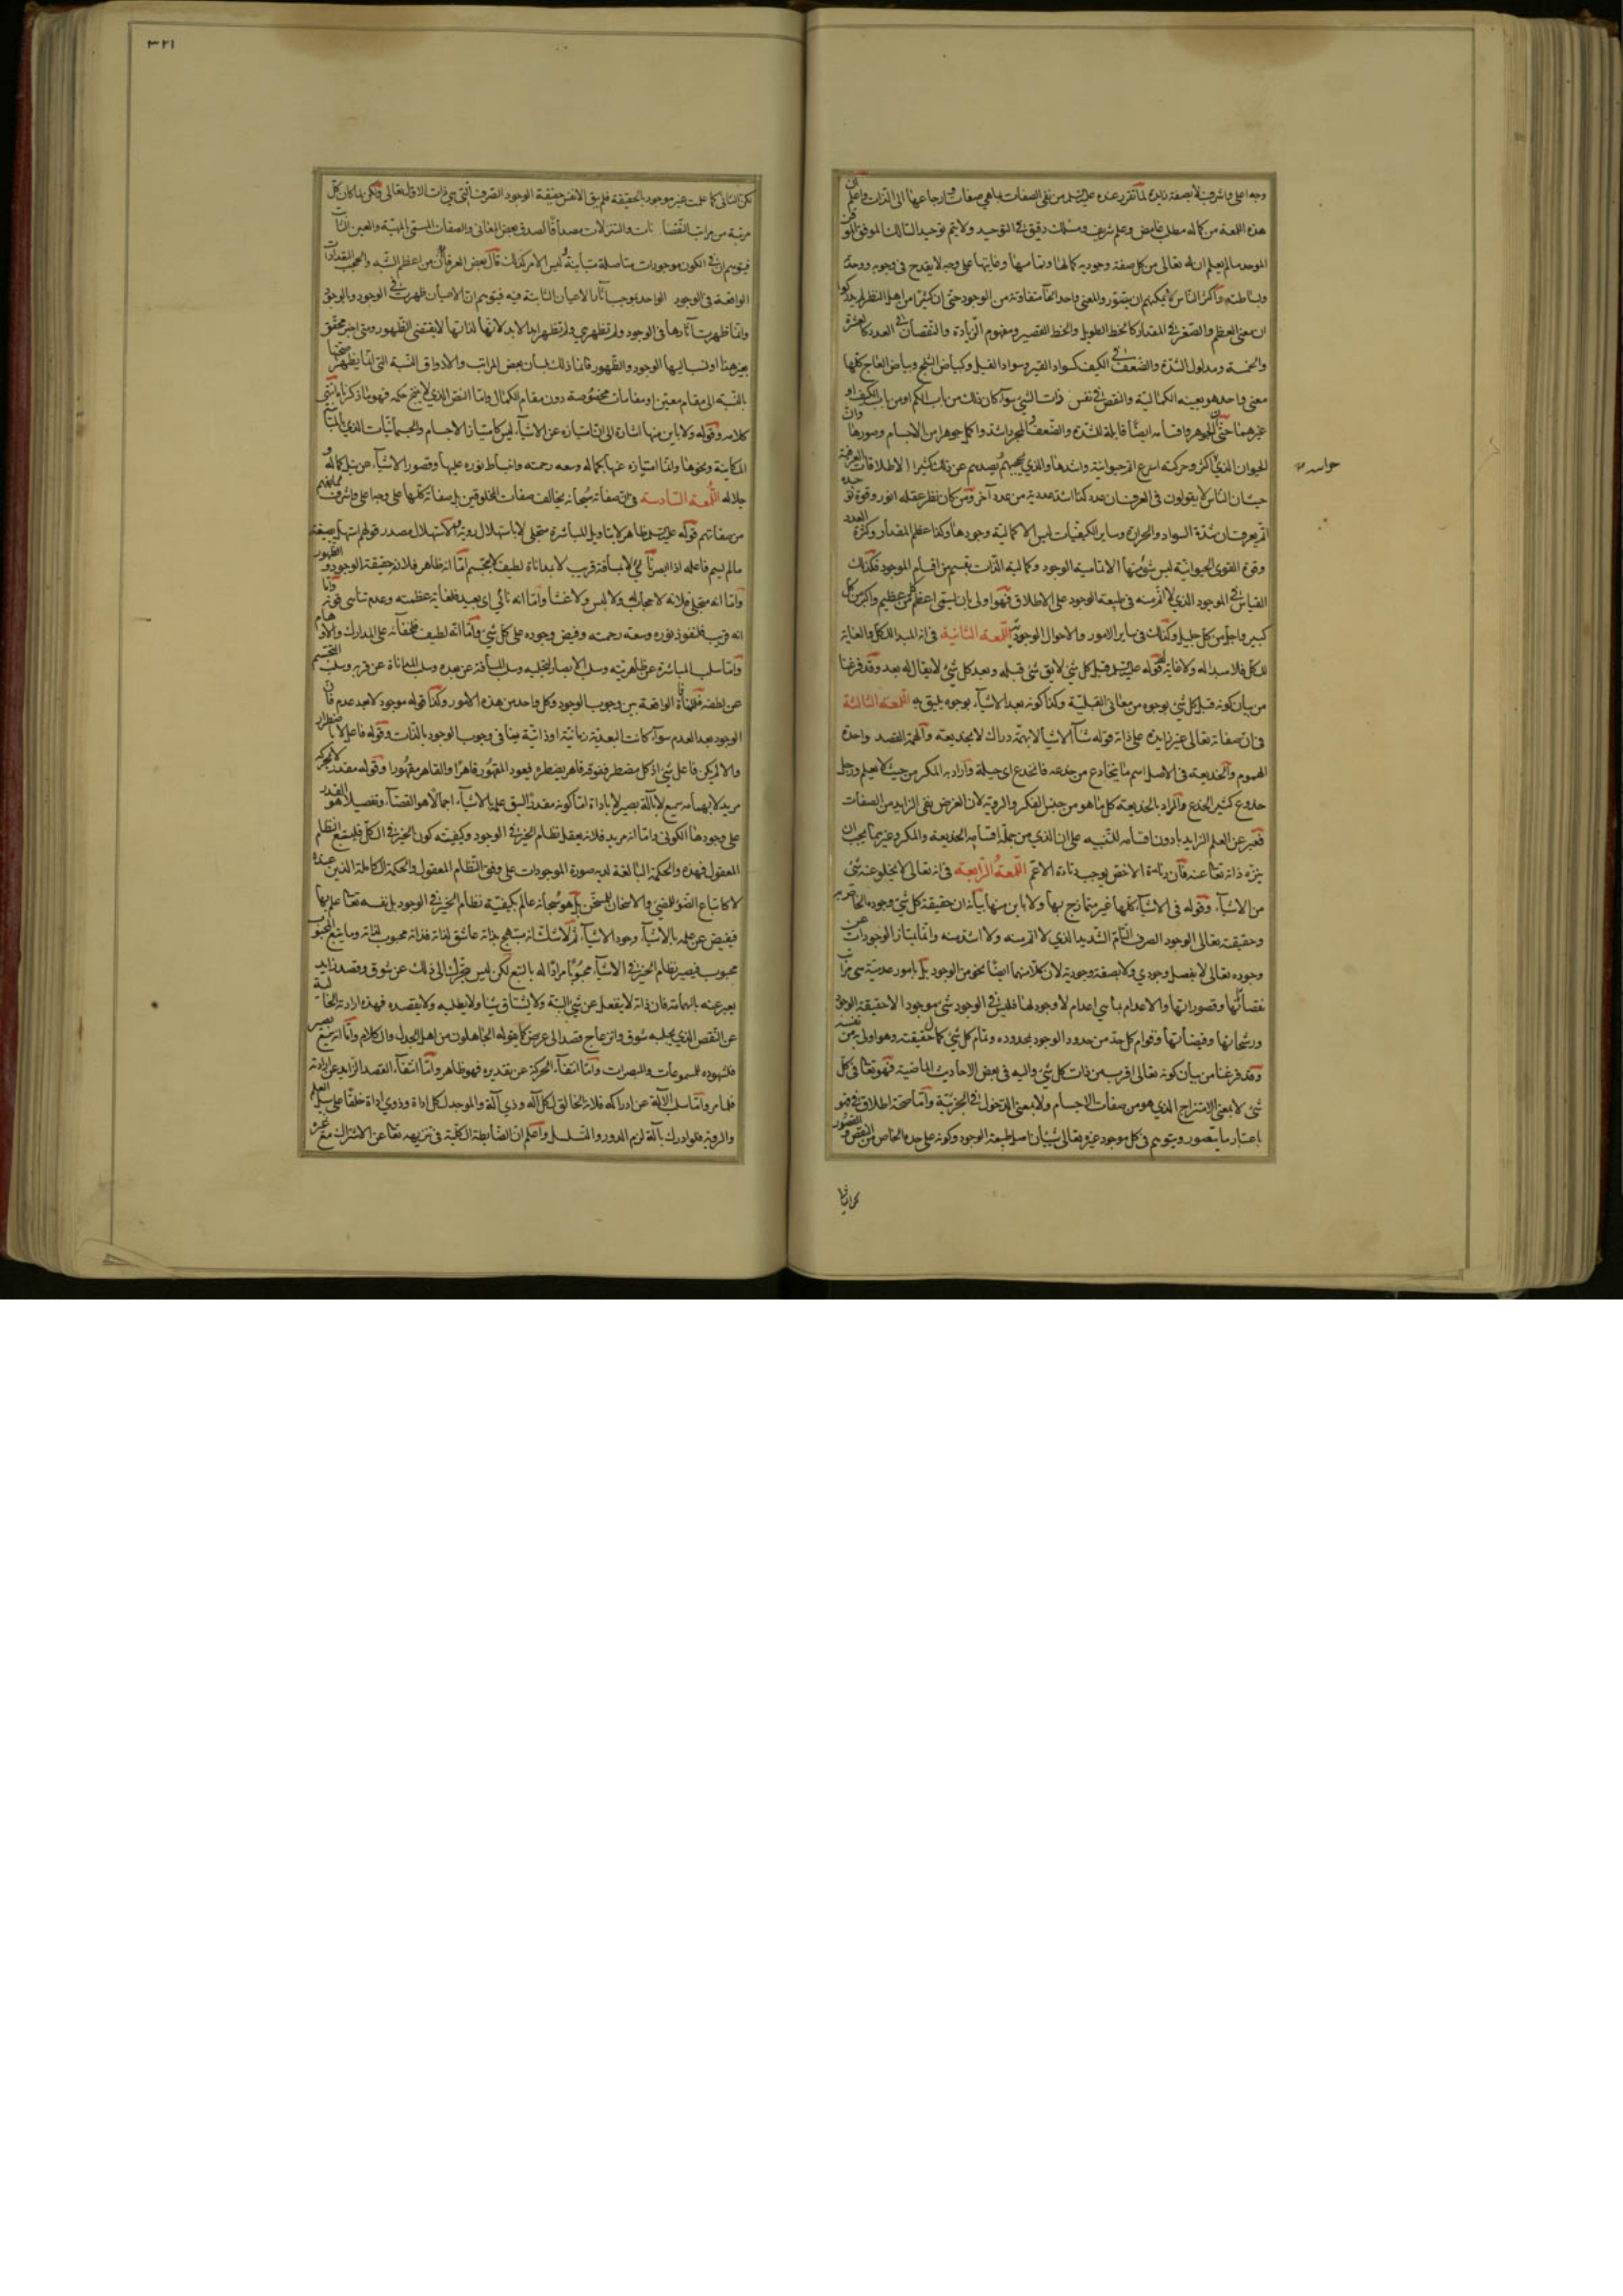 ٣٢١
وجه اعلى واشرف لا بصفة زايدة لما تقرر عنده عليه السلم من نفى الصفات بما هي صفات وارجاعها الى الذات واعلم ان
هذه اللمعة من كماله مطلب غامض وعلم شريف ومسلك دقيق في التوحيد ولا يتم توحيد السالك الموفق
الموحد ما لم يعلم ان له تعالى من كل صفة وجودية كمالها وتمامها وغايتها على وجه لا يقدح في وجوبه ووحدته
وبساطته واكثر الناس لا يمكنهم ان يتصور والمعنى واحد انحاء متفاوتة من الوجود حتى ان كثيرا من اهل النظر لم يدركوا
ان معنى العظم والصغر في المقدار كالخط الطويل والخط القصير ومفهوم الزيادة والنقصان في العدد كالعشرة
والخمسة ومدلول الشدة والضعف في الكيف كسواد القير وسواد الفيل وكبياض الثلج وبياض العاج كلها
معنى واحد هو بعينه الكمالية والنقص في نفس ذات الشئ سواء كان ذلك من باب الكم او من باب الكيف او
غيرهما حتى ان الجوهر واقسامه ايضا قابلة للشدة والضعف والمجرد اشد واكمل جوهرا من الاجسام وصورها وان
الحيوان الذي اكثر وحركته اسرع اتم حيوانية واشدها والذي يحجبهم ويصدهم عن ذلك كثيرا الاطلاقات العرفية
حواسه
حيث ان الناس لا يقولون في العرف ان عدد كذا اشد عددية من عدد آخر ومن كان نظر عقله انور وقوة حدسه
اتم يعرف ان شدة السواد والحرارة وساير الكيفيات ليس الا كمالية وجودها وكذا عظم المقدار وكثرة العدد
وقوة القوى الحيوانية ليس شئ منها الا تمامية الوجود وكمالية الذات بقسم من اقسام الموجود فكذلك
القياس في الموجود الذي لا اتم منه في طبيعة الوجود على الاطلاق فهو اولى بان يسمى اعظم من كل عظيم واكبر من كل
كبير واجل من كل جليل وكذلك في ساير الامور والاحوال الوجودية اللمعة الثانية في انه المبدا للكل والغاية
للكل فلا مبدا له ولا غاية لقوله عليه السلم قبل كل شئ لا يق شئ قبله وبعد كل شئ لا يقال له بعد وقد فرغنا
من بيان كونه قبل كل شئ بوجوه من معاني القبلية وكذا كونه بعد الاشياء بوجوه يليق به اللمعة الثالثة
في ان صفاته تعالى غير زايدة على ذاته قوله شاء الاشياء لا بهمة دراك لا بخديعة والهمة القصد واحدة
الهموم والخديعة في الاصل اسم ما يخادع من خدعه فانخدع اي حيلة واراد به المكر من حيث لا يعلم ورجل
خدوع كثير الخدع والمراد بالخديعة كل ما هو من جنس الفكر والروية لان الغرض نفى الزايد من الصفات
فعبر عن العلم الزايد بادون اقسامه للتنبيه على ان الذي من جملة اقسامه الخديعة والمكر وغيرهما يجب ان
ينزه ذاته تعالى عنه فان دناءة الاخص يوجب دناءة الاعم اللمعة الرابعة في انه تعالى لا يخلو عنه شئ
من الاشياء وقوله في الاشياء كلها غير متمازج بها ولا باين منها بيانه ان حقيقة كل شئ وجوده الخاص به
وحقيقته تعالى الوجود الصرف التام الشديد الذي لا اتم منه ولا اشد منه وانما يمتاز الوجودات عن
وجوده تعالى لا بفصل وجودي ولا بصفة وجودية لان كلا منهما ايضا نحو من الوجود بل بامور عدمية هي مراتب
نقصاناتها وقصوراتها والاعدام بما هي اعدام لا وجود لها فليس في الوجود شئ موجود الا حقيقة الوجود
ورشحاتها وفيضاتها وقوام كل حد من حدود الوجود بمحدوده وتمام كل شئ كمال حقيقته وهو اولى به من نفسه
وقد فرغنا من بيان كونه تعالى اقرب من ذات كل شئ واليه في بعض الاحاديث الماضية فهو تعالى في كل
شئ لا بمعنى الامتزاج الذي هو من صفات الاجسام ولا بمعنى الدخول في الجزئية واما صحة اطلاق في فهو
باعتبار ما يتصور ويتوهم في كل موجود غيره تعالى شيئان اصل طبيعة الوجود وكونه على حده الخاص من النقص والقصور
لكن الثاني كما علمت غير موجود بالحقيقة فلم يبق الا نفس حقيقة الوجود الصرف التي هي ذات الاول تعالى ولكن لما كان كل
مرتبة من مراتب النقصانات والتنزلات مصداقا لصدق بعض المعاني والصفات المسمى بالمهية والعين الثابت
فيتوهم ان في الكون موجودات متاصلة متباينة وليس الامر كذلك قال بعض العرفاء ان من اعظم الشبه والحجب التعددات
الواقعة في الوجود الواحد بموجب آثار الاعيان الثابتة فيه فيتوهم ان الاعيان ظهرت في الوجود وبالوجود
وانما ظهرت آثارها في الوجود ولم تظهر هي ولم تظهر ابدا لانها لذاتها لا يقتضي الظهور ومتى اخبر محقق
بغير هذا او نسب اليها الوجود والظهور فانما ذلك بلسان بعض المراتب والاذواق النسبة التي انما يظهر صحتها
بالنسبة الى مقام معين او مقامات مخصوصة دون مقام الكمال واما النص الذي لا ينسخ حكمه فهو ما ذكرناه انتهى
كلامه وقوله ولا باين منها اشارة الى ان امتيازه عن الاشياء ليس كامتياز الاجسام والجسمانيات الذي بالمباينة
المكانية ونحوها وانما امتيازه عنها بكماله وسعة رحمته وانبساط نوره عليها وقصور الاشياء عن نيل كماله و
جلاله اللمعة السادسة في ان صفاته سبحانه يخالف صفات المخلوقين بل صفاته كلها على وجه اعلى واشرف مما يفهم
من صفاتهم قوله عليه السلم ظاهر لا بتاويل المباشرة متجلى لا باستهلال روية والاستهلال مصدر قولهم استهل بصيغة
ما لم يسم فاعله اذا ابصر نائي لا بمسافة قريب لا بمداناة لطيف لا بتجسم اما انه ظاهر فلانه حقيقة الوجود والظهور
واما انه متجلى فلانه لا حجاب له ولا لبس ولا غشاء واما انه نائي اي بعيد فلغاية عظمته وعدم تناهي قوته واما
انه قريب فلنفوذ نوره وسعة رحمته وفيض وجوده على كل شئ واما انه لطيف فلخفائه على المدارك والاوهام
واما سلب المباشرة عن ظاهريته وسلب الابصار لتجليه وسلب المسافة عن بعده وسلب المداناة عن قربه وسلب التجسم
عن لطفه فلمنافاة الواقعة بين وجوب الوجود وكل واحد من هذه الامور وكذا قوله موجود لا بعد عدم فان
الوجود بعد العدم سواء كانت البعدية زمانية او ذاتية ينافي وجوب الوجود بالذات وقوله فاعل لا باضطرار
والا لم يكن فاعل شئ اذ كل مضطر ففوقه قاهر يضطره فيعود المقهور قاهرا والقاهر مقهورا وقوله مقدر لا بحركة
مريد لا بهمامة سميع لا بآلة بصير لا باداة اما كونه مقدرا لسبق علمه بالاشياء اجمالا هو القضاء وتفصيلا هو القدر
على وجودها الكوني واما انه مريد فلانه يعقل نظام الخير في الوجود وكيفيته كون الخير في الكل فليتبع النظام
المعقول فهذه والحكمة البالغة لديه صورة الموجودات على وفق النظام المعقول والحكمة الكاملة الذين عنده
لا كاتباع الضوء للمضئ والاسخان للسخن بل هو سبحانه عالم بكيفية نظام الخير في الوجود بل نفسه تعالى علم بها
فيفيض عن علمه بالاشياء وجود الاشياء ثم لا شك انه مبتهج بذاته عاشق لذاته فذاته محبوب لذاته وما يتبع المحبوب
محبوب فيصير نظام الخير في الاشياء محبوبا مرادا له بالتبع لكن ليس يتحرك الى ذلك عن شوق وقصد زايد
يعبر عنه بالهمامة فان ذاته لا ينفعل عن شئ البتة ولا يشتاق شيئا ولا يطلبه ولا يقصده فهذه ارادته الخالية
عن النقص الذي يجلبه شوق وانزعاج وقصد الى غرض كما يقوله الجاهلون من اهل الجدل والكلام واما انه سميع بصير
فلشهوده للمسموعات والمبصرات واما انتفاء الحركة عن تقديره فهو ظاهر واما انتفاء القصد الزايد عن ارادته
فلما مر واما سلب الآلة عن ادراكه فلانه الخالق لكل آلة وذي آلة والموجد لكل اداة وذوي اداة خلقا على سبيل العلم
والروية فلو ادرك بآلة لزم الدور والتسلسل واعلم ان الضابطة الكلية في تنزيهه تعالى عن الاشتراك مع غيره